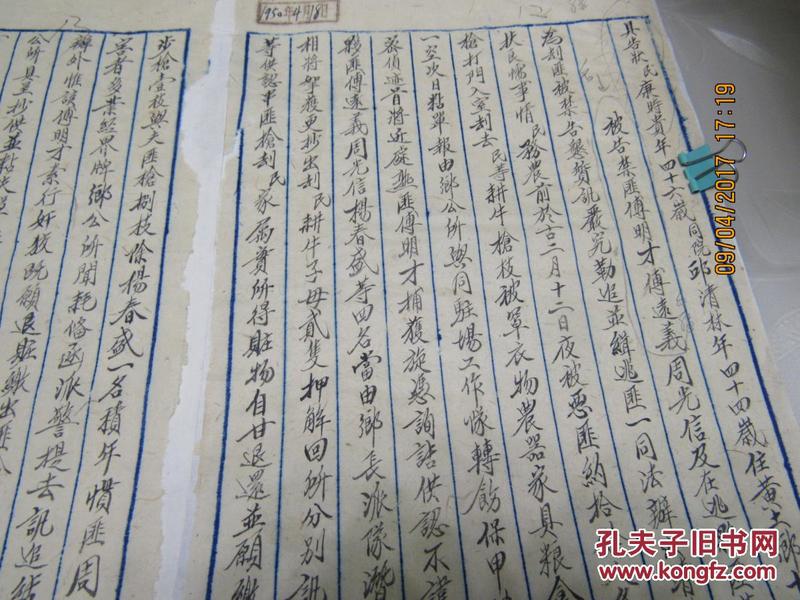 1950年4月18日
具告狀民廉時貴年四十六歲同院邱清林年四十四歲住黃
被告禁匪傅明才傅遠義周光信及在逃
為刦匪被禁告懇賛訊嚴究勒追並緝逃匪一同法辦
扶民懦事情民務農前於古二月十二日夜被惡匪約拾
槍打門入室刦去民等耕牛槍枝被罩衣物農器家具粮食
一空次日稭單報由鄉公所與同駐場工作隊轉飭保甲
並偵迹首將近碇逃匪傅明才捕獲旋憑詢詰供認不諱
夥匪傅遠義周光信楊春盛等四名當由鄉長派隊潛
相將拏獲更抄出刦民耕牛子母貳隻押解回所分別訊
等供認串匪槍刦民家屬實所得賍物自甘退還並願繳
步槍壹枝與夫匪槍捌枝除楊春盛一名積年慣匪周
害者多業經界牌鄉公所聞耗俻函派警提去訊追結
辦外惟該傅明才素行奸狡既願退賍繳出匪
公所具呈抄供並粘失單
09/04/2017 17:19
孔夫子旧书网
www.kongfz.com